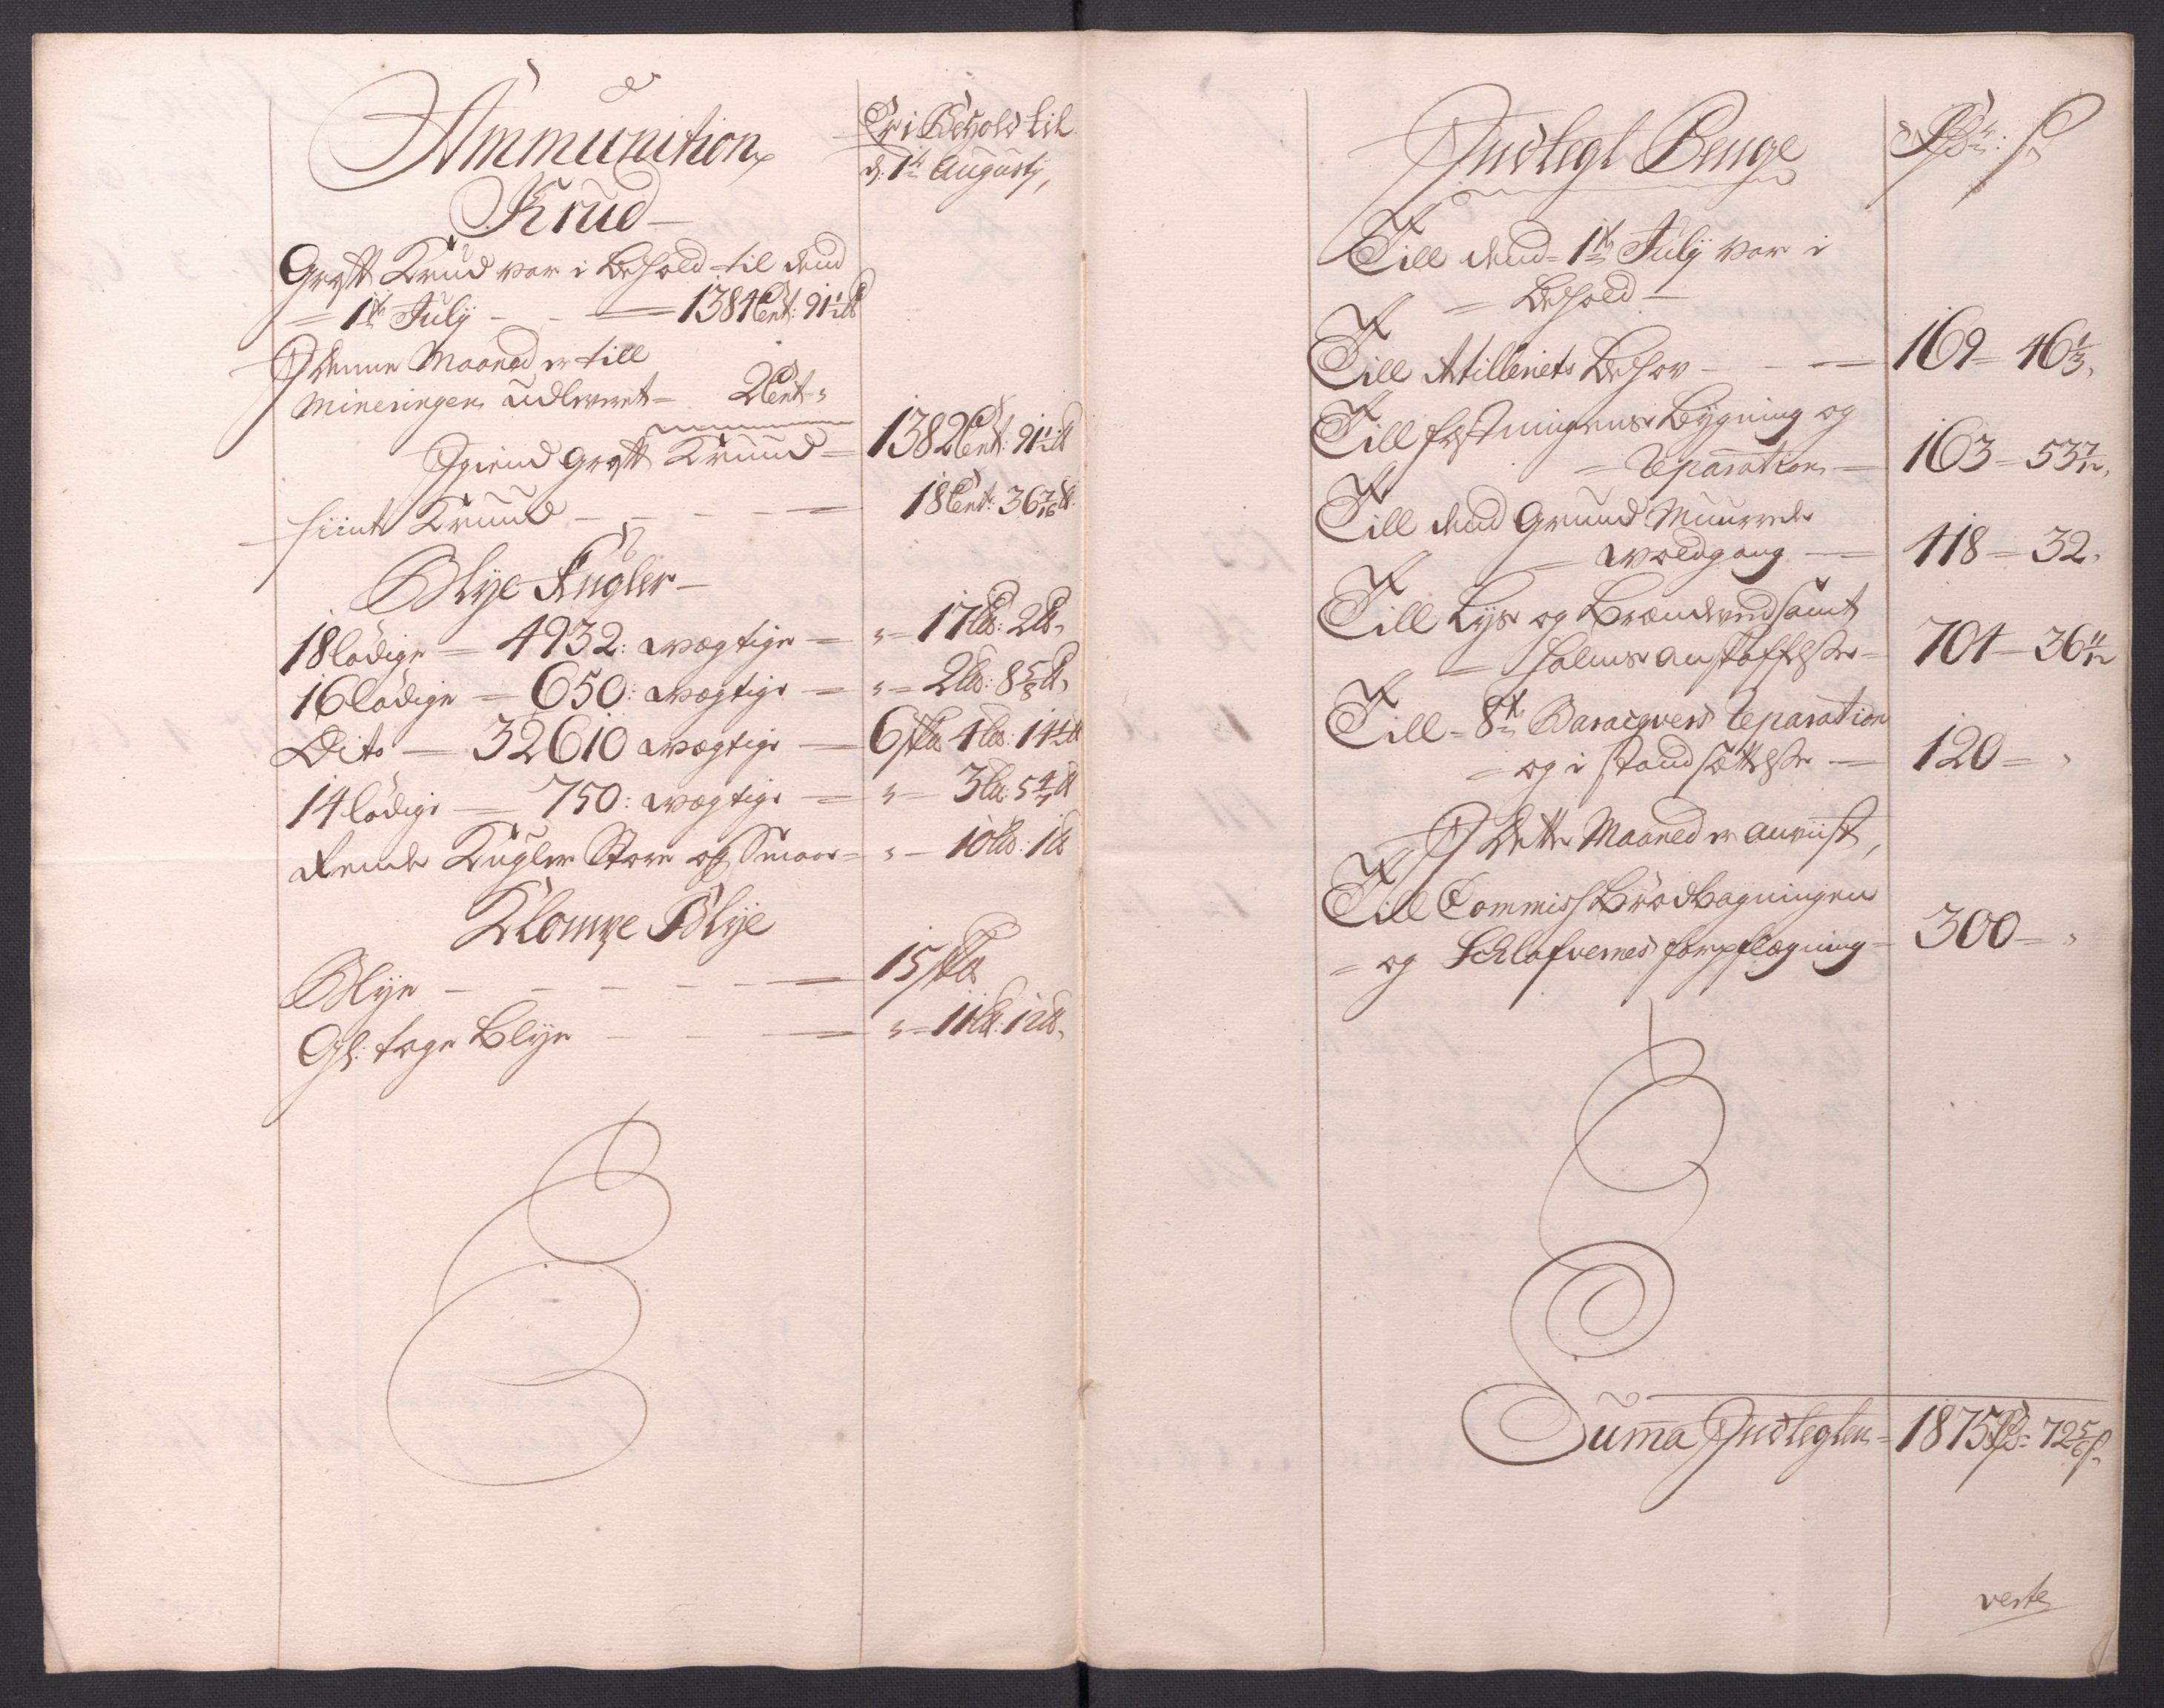 Ammunition
Er i Behold til
d: 1te Augustj,
Krud
Groft Krud var i behold til dend
1te July 1384 Cent: 91½ ℔
I denne Maaned er till
Mineringen udleveret 2 Cent
Igiend groft Kruud 1382 Cent: 91½ ℔
fiint Kruud 18 Cent: 36 7/16 ℔
Blye Kugler
18 lödige 4932: wægtige 17 L℔: 2 ℔
16 lödige 650: wægtige 2 L℔: 8 5/8 ℔
Dito 32610 wægtige 6 s℔ 4 L℔: 14½ ℔
14 lödige 750: wægtige 3 L℔: 5 4/7 ℔
Rende Kugler Store og Smaae 10 L℔: 1 ℔
Klompe Blye
Blye 15 s℔
Gl: tage Blye 11 L℔: 12 ℔
Indlegt Penge Rdr: s
Till dend 1te July var i
behold
Till Artilleriets behov 169 - 46 1/3
Till fæstningens Bygning og
Reparation 163 - 53 7/12
Till dend Grund Muurede
woldgang 418 - 32
Till Lys og brændeved samt
halms anskaffelse 704 - 36 11/12
Till 8te Baraqvers Reparation
og i stand sættelse 120
I dette Maaned er anviist,
Till Commiss Brödbagningen
og Schlafvernes forpflægning 300
Suma Indlegten 1875 Rdr: 72 5/6 s
verte